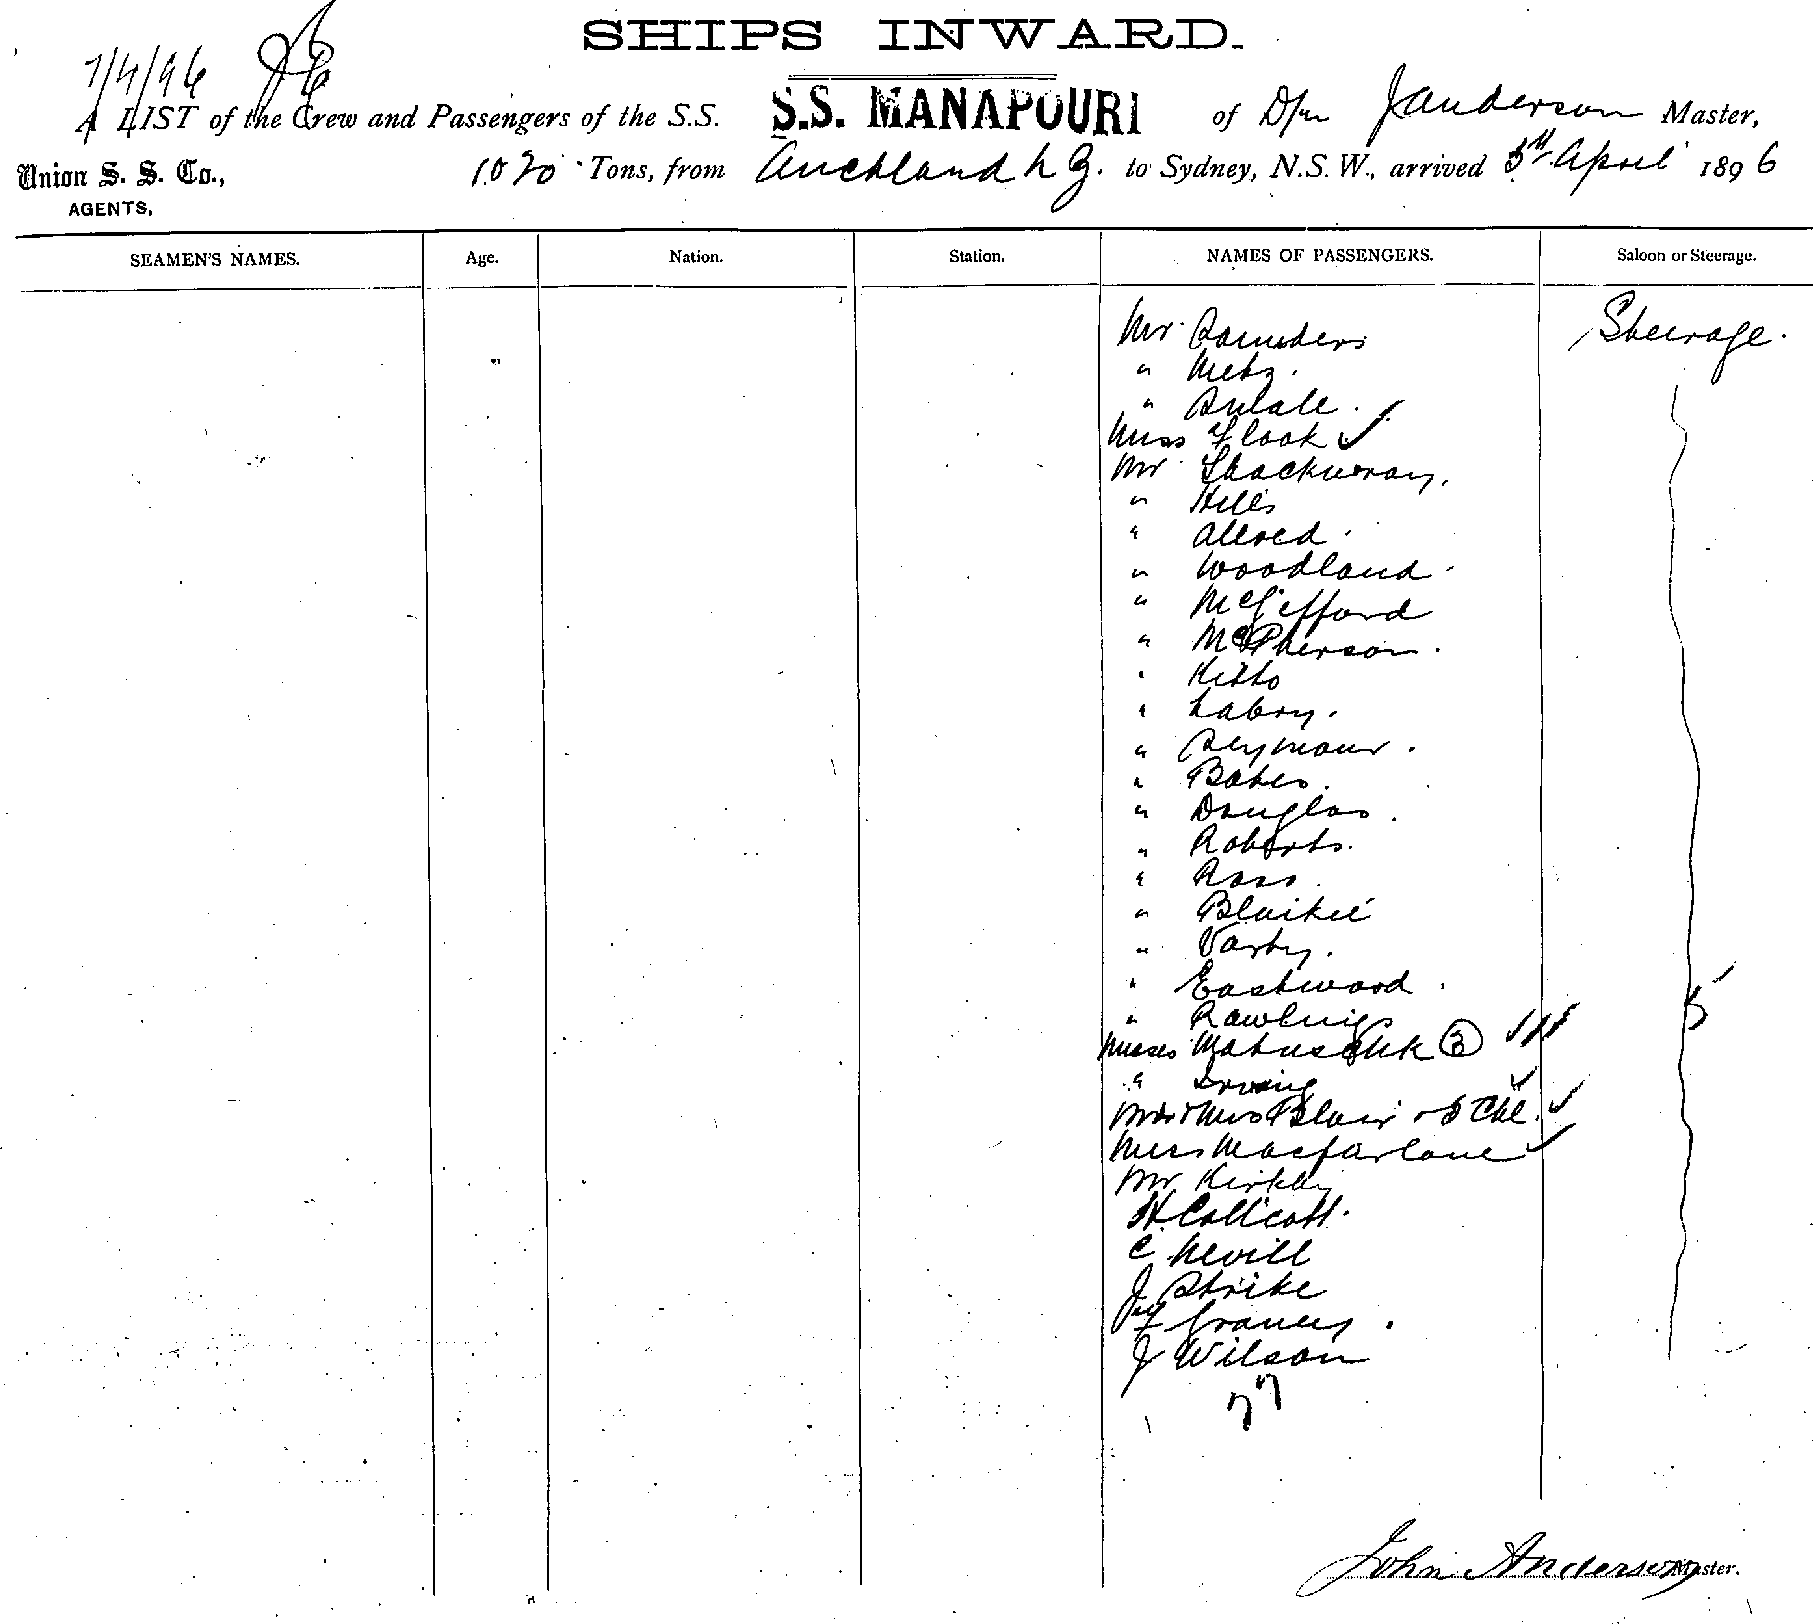 SHIPS INWARD.
7/4/96
A LIST of the Crew and Passengers of the S.S. S.S. MANAPOURI of D/n J Anderson Master,
Union S. S. Co., 1020 Tons, from Auckland N Z. to Sydney, N.S.W., arrived 5th April 1896
AGENTS,
SEAMEN'S NAMES. Age. Nation. Station. NAMES OF PASSENGERS. Saloon or Steerage.
Mr Saunders Steerage.
" Metz.
"
Miss Flook ✓
Mr Thackwray.
" Hills
" Allred
" Woodland
" McGifford
" McPherson.
" Kitto
" Labry.
" Seymour.
" Bates.
" Douglas.
" Roberts.
" Ross.
" Blaikie
" Varty.
" Eastwood
" Rawlings
Misses Matuschk ③
" Irving
Mr & Mrs Blair & 5 Chl.
Miss Macfarlane
Mr Kirkby
H. Collcott.
C Nevill
J Strike
J Wilson
77
John Anderson Master.